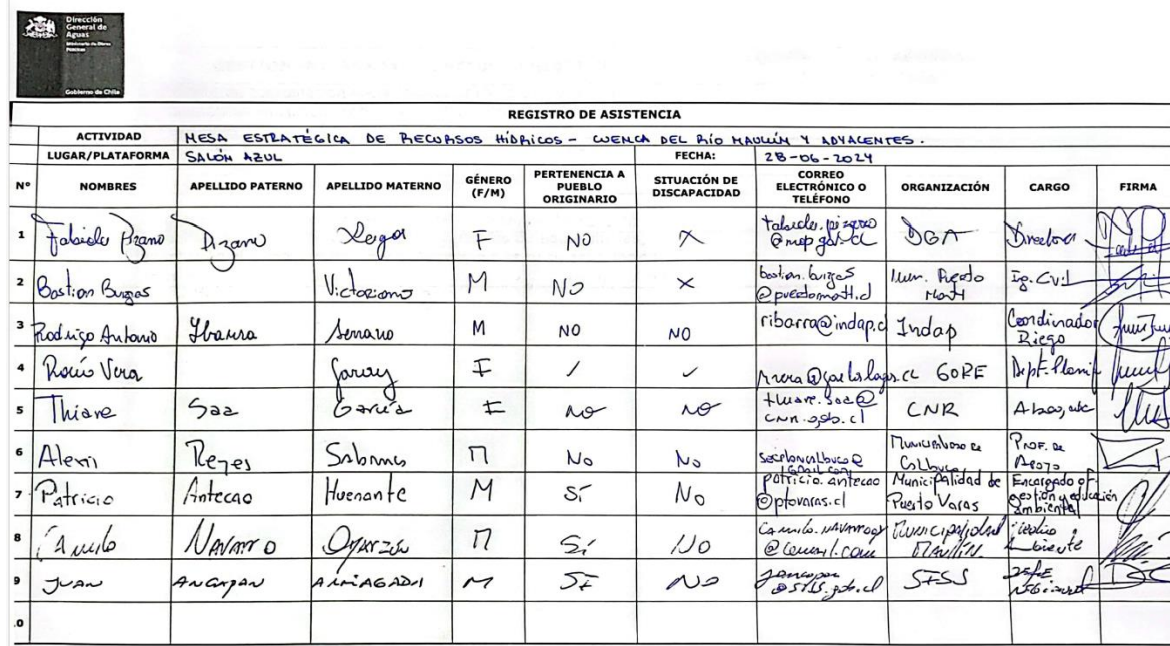 Dirección
General de
Aguas
Ministerio de Obras
Públicas
Gobierno de Chile
REGISTRO DE ASISTENCIA
ACTIVIDAD MESA ESTRATÉGICA DE RECURSOS HÍDRICOS - CUENCA DEL RÍO MAULLÍN Y ADYACENTES.
LUGAR/PLATAFORMA SALÓN AZUL FECHA: 28-06-2024
N° NOMBRES APELLIDO PATERNO APELLIDO MATERNO GÉNERO (F/M) PERTENENCIA A PUEBLO ORIGINARIO SITUACIÓN DE DISCAPACIDAD CORREO ELECTRÓNICO O TELÉFONO ORGANIZACIÓN CARGO FIRMA
1 Pizarro F NO X DGA Directora
2 Bastian Burgos Victoriano M NO X bastian.burgos @puertomontt.cl Mun. Puerto Montt Ig. Civil
3 Rodrigo Antonio Ybarra Serrano M NO NO ribarra@indap.cl Indap Coordinador Riego
4 Rocío Vera Garay F / GORE Dept. Planif
5 Thiare Saa García F NO NO thiare.saa@ cnr.gob.cl CNR
6 Reyes M No No Municipalidad de Calbuco Prof. de Apoyo
7 Patricio Antecao Huenante M Sí No patricio.antecao @ptovaras.cl Municipalidad de Puerto Varas Encargado of. gestión y educación ambiental
8 Camilo Navarro Oyarzún M Sí NO Municipalidad Maullín Medio Ambiente
9 JUAN M SI NO SISS
.0